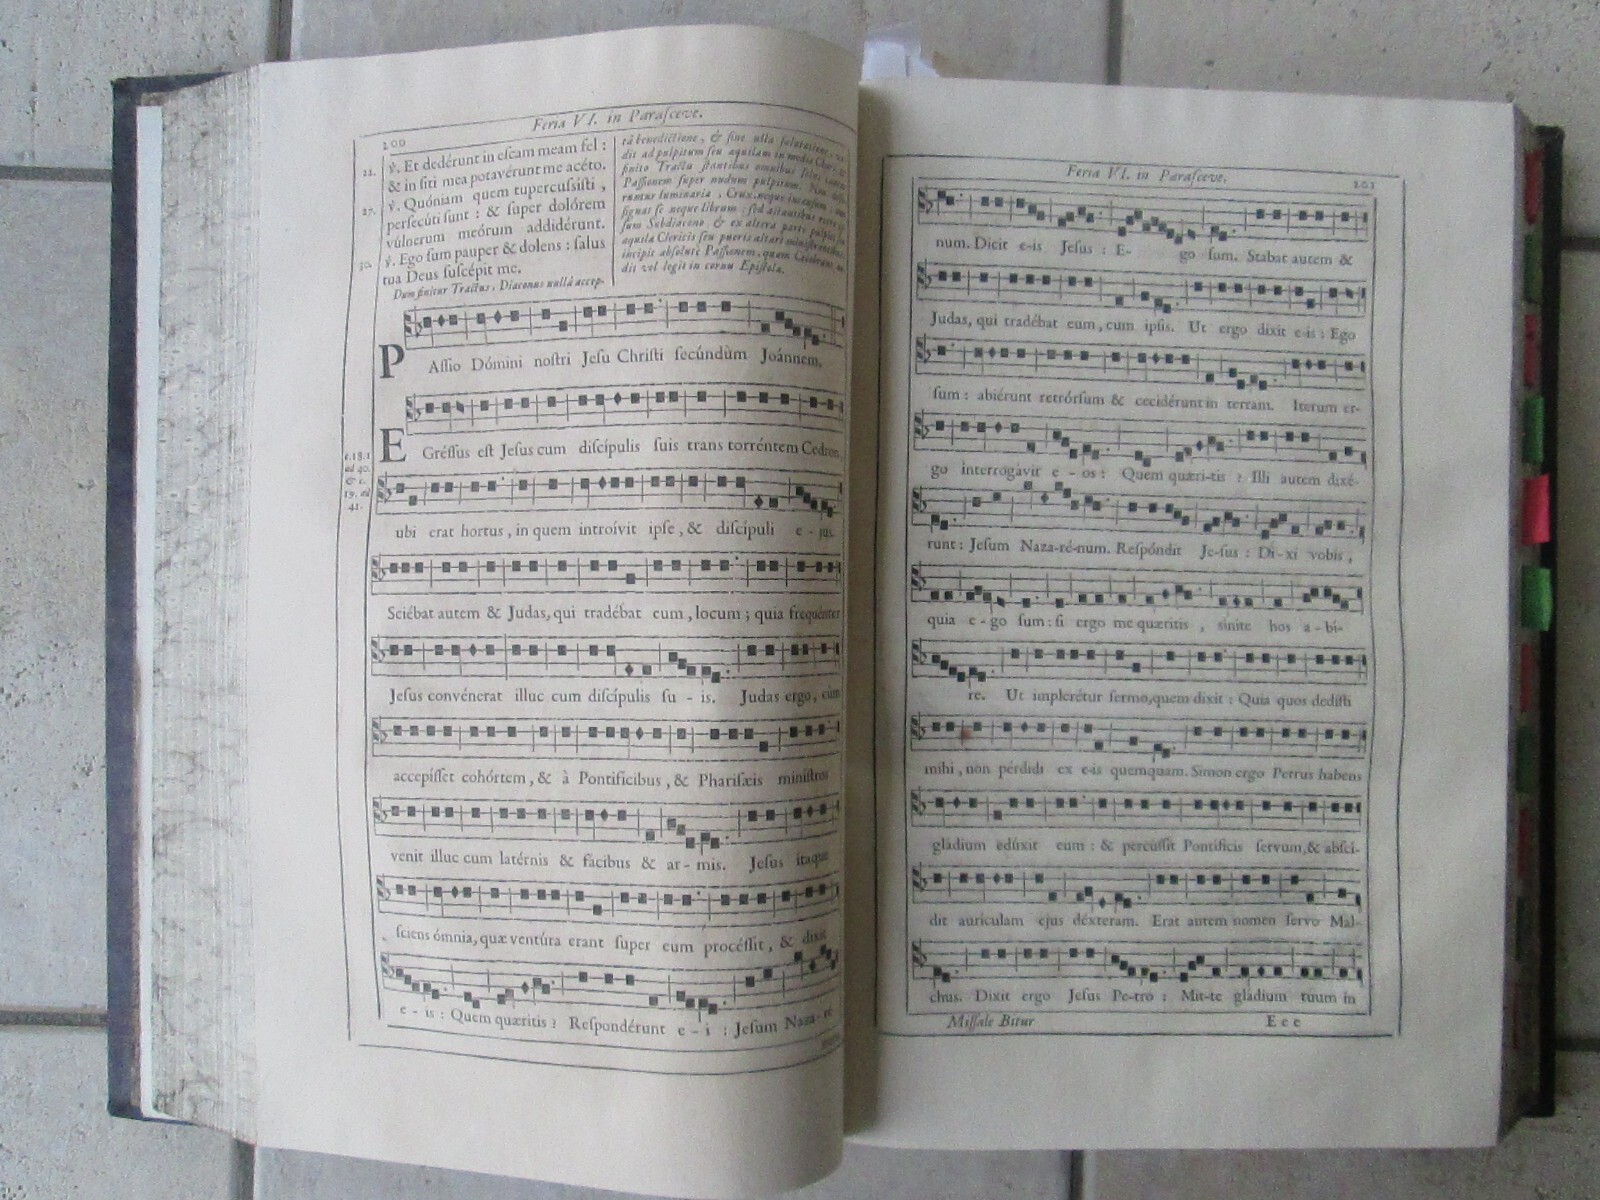 Feria VI. in Paraſceve.
200
22. ℣. Et dedérunt in eſcam meam fel :
& in ſiti mea potavérunt me acéto.
27. ℣. Quóniam quem tu percuſsiſti ,
perſecúti ſunt : & ſuper dolórem
vúlnerum meórum addidérunt.
30. ℣. Ego ſum pauper & dolens : ſalus
tua Deus ſuſcépit me.
Dum finitur Tractus, Diaconus nullâ accep-
tâ benedictione, & ſine ulla ſalutatione, va-
dit ad pulpitum ſeu aquilam in medio Chori, &
finito Tractu ſtantibus omnibus
Paſſionem ſuper nudum pulpitum. Non
runtur luminaria , Crux, neque incenſum :
ſignat ſe neque librum : ſed aſtantibus
ſum Subdiacono & ex altera parte
aquila Clericis ſeu pueris altari miniſtrantibus,
incipit abſolutè Paſſionem, quam Celebrans
dit vel legit in cornu Epiſtolæ.
PAſſio Dómini noſtri Jeſu Chriſti ſecúndùm Joánnem.
EGréſſus eſt Jeſus cum diſcípulis ſuis trans torréntem Cedron,
c.18.1
ad 40.
& c.
19. ad
41.
ubi erat hortus, in quem introívit ipſe, & diſcípuli e - jus.
Sciébat autem & Judas, qui tradébat eum, locum ; quia frequénter
Jeſus convénerat illuc cum diſcípulis ſu - is. Judas ergo, cùm
accepíſſet cohórtem, & à Pontificibus, & Phariſæis miniſtros
venit illuc cum latérnis & fácibus & ar - mis. Jeſus itaque
ſciens ómnia, quæ ventúra erant ſuper eum procéſſit, & dixit
e - is : Quem quæritis ? Reſpondérunt e - i : Jeſum Naza - ré
Feria VI. in Paraſceve. 201
num. Dicit e-is Jeſus : E- go ſum. Stabat autem &
Judas, qui tradébat eum, cum ipſis. Ut ergo dixit e-is : Ego
ſum : abiérunt retrórſum & cecidérunt in terram. Iterum er-
go interrogávit e - os : Quem quæri-tis ? Illi autem dixé-
runt : Jeſum Naza-ré-num. Reſpóndit Je-ſus : Di-xi vobis ,
quia e-go ſum : ſi ergo me quæritis , sinite hos a - bi-
re. Ut implerétur ſermo, quem dixit : Quia quos dedíſti
mihi , non pérdidi ex e-is quemquam. Simon ergo Petrus habens
gládium edúxit eum : & percúſſit Pontificis ſervum, & abſci-
dit aurículam ejus déxteram. Erat autem nomen ſervo Mal-
chus. Dixit ergo Jeſus Pe-tro : Mit-te gládium tuum in
Miſſale Bitur E e e